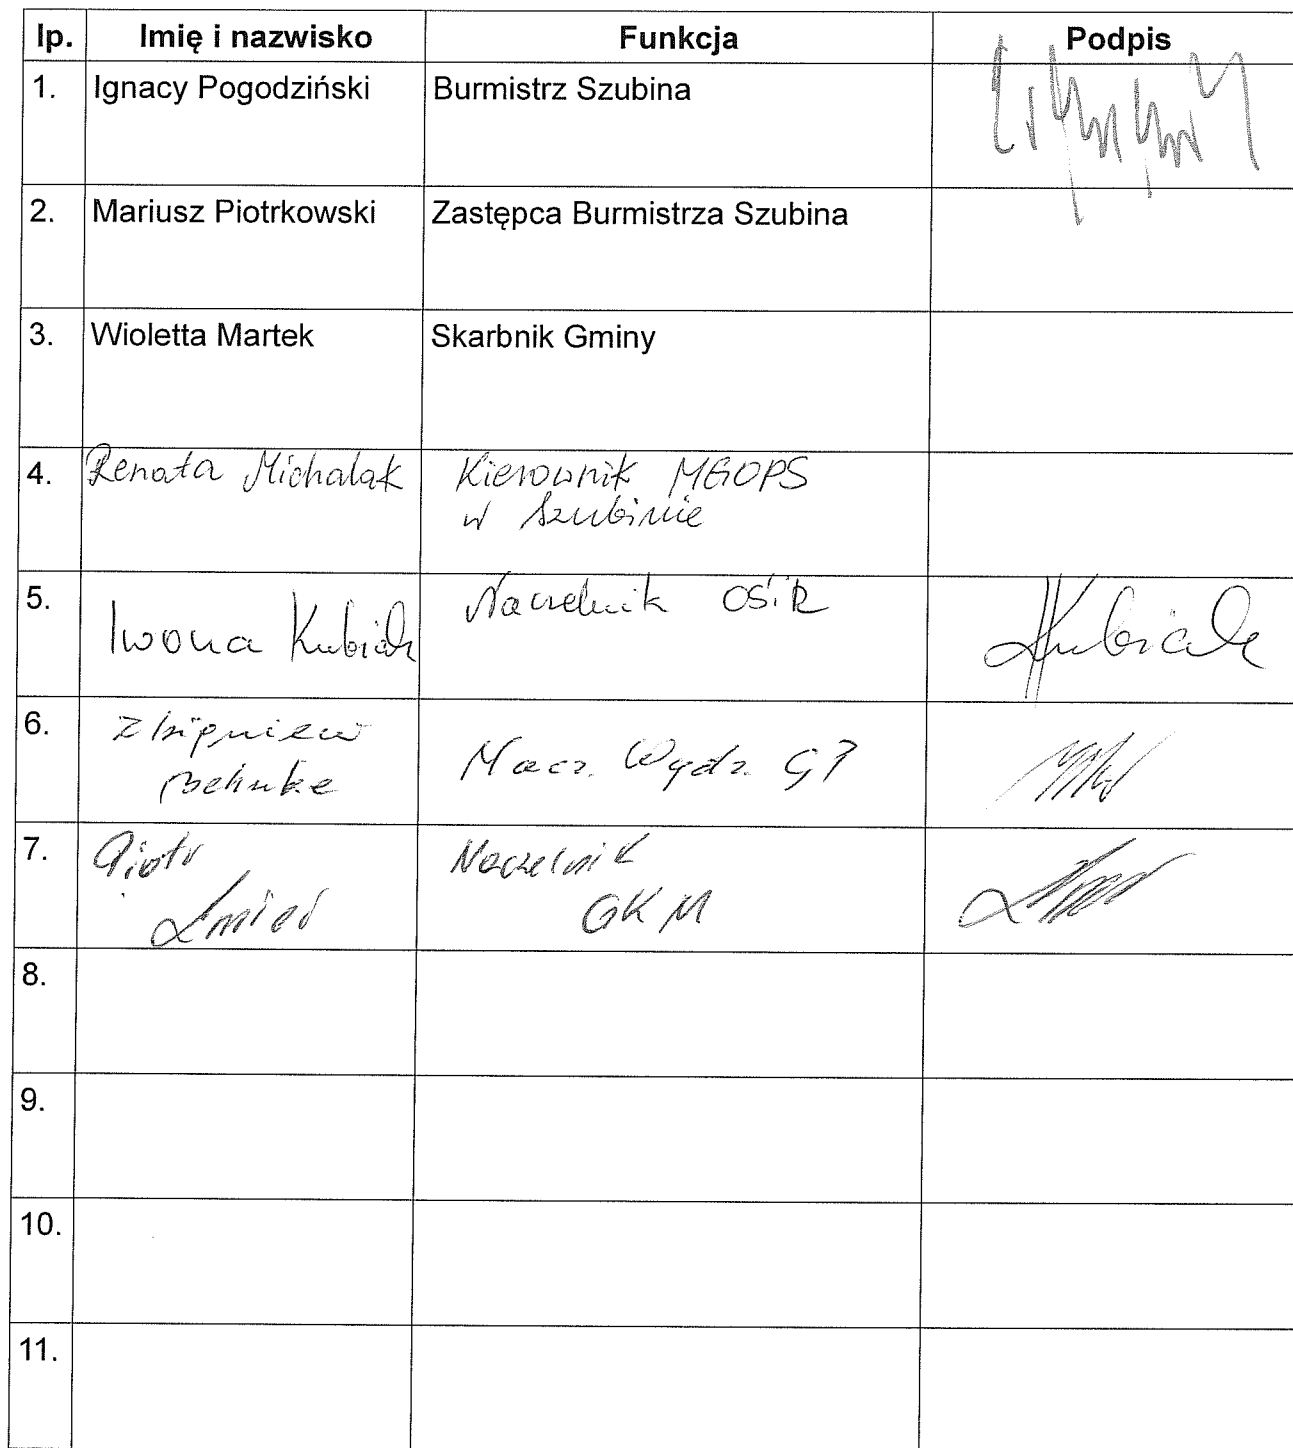 lp. Imię i nazwisko Funkcja Podpis
1. Ignacy Pogodziński Burmistrz Szubina
2. Mariusz Piotrkowski Zastępca Burmistrza Szubina
3. Wioletta Martek Skarbnik Gminy
4. Renata Michalak Kierownik MGOPS
w Szubinie
5. Iwona Kubiak Naczelnik OŚiR Kubiak
6. Zbigniew Nacz. Wydz.
Behnke
7. Piotr Naczelnik
GKM
8.
9.
10.
11.